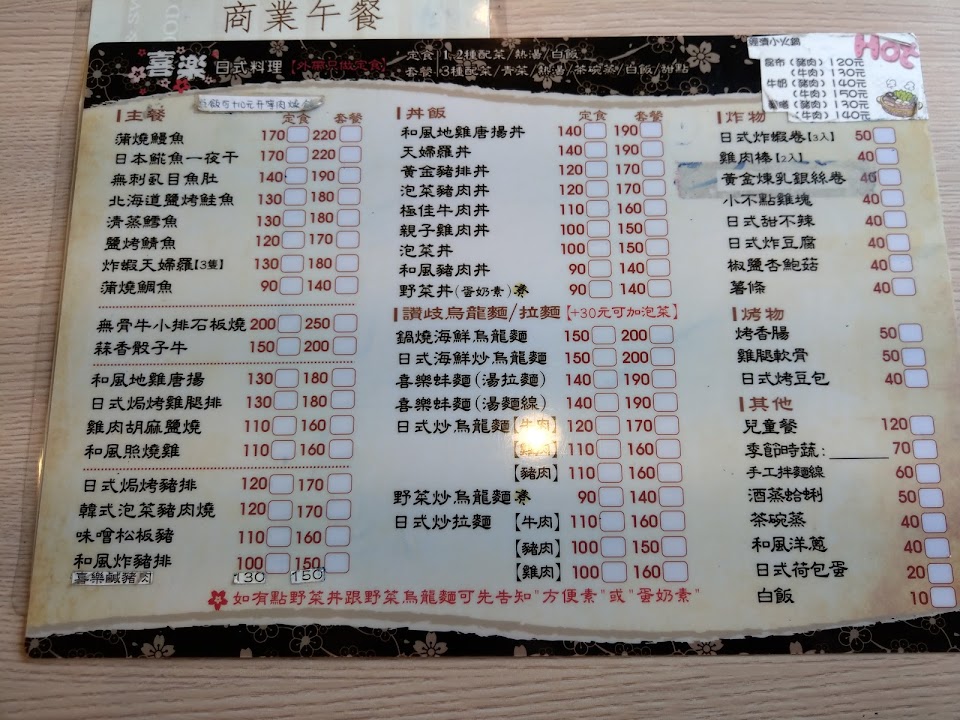 商業午餐
喜樂 日式料理【外帶只做定食】
定食 1,2種配菜/熱湯/白飯
套餐 3種配菜/青菜/熱湯/茶碗蒸/白飯/甜點
經濟小火鍋 Hot
昆布(豬肉)120元
(牛肉)130元
牛奶(豬肉)140元
(牛肉)150元
(豬肉)130元
(牛肉)140元
主餐 定食 套餐
蒲燒鰻魚 170 220
日本鯱魚一夜干 170 220
無刺虱目魚肚 140 190
北海道鹽烤鮭魚 130 180
清蒸鱈魚 130 180
鹽烤鯖魚 120 170
炸蝦天婦羅【3隻】 130 180
蒲燒鯛魚 90 140
無骨牛小排石板燒 200 250
蒜香骰子牛 150 200
和風地雞唐揚 130 180
日式焗烤雞腿排 130 180
雞肉胡麻鹽燒 110 160
和風照燒雞 110 160
日式焗烤豬排 120 170
韓式泡菜豬肉燒 120 170
味噌松板豬 110 160
和風炸豬排 100 150
喜樂鹹豬肉 130 150
丼飯 定食 套餐
和風地雞唐揚丼 140 190
天婦羅丼 140 190
黃金豬排丼 120 170
泡菜豬肉丼 120 170
極佳牛肉丼 110 160
親子雞肉丼 100 150
泡菜丼 100 150
和風豬肉丼 90 140
野菜丼(蛋奶素) 90 140
讚岐烏龍麵/拉麵【+30元可加泡菜】
鍋燒海鮮烏龍麵 150 200
日式海鮮炒烏龍麵 150 200
喜樂蚌麵(湯拉麵) 140 190
喜樂蚌麵(湯麵線) 140 190
日式炒烏龍麵【牛肉】 120 170
【雞肉】 110 160
【豬肉】 110 160
野菜炒烏龍麵 90 140
日式炒拉麵 【牛肉】 110 160
【豬肉】 100 150
【雞肉】 100 160
炸物
日式炸蝦卷【3入】 50
雞肉棒【2入】 40
黃金煉乳銀絲卷 40
小不點雞塊 40
日式甜不辣 40
日式炸豆腐 40
椒鹽杏鮑菇 40
薯條 40
烤物
烤香腸 50
雞腿軟骨 50
日式烤豆包 40
其他
兒童餐 120
季節時蔬:______ 70
手工拌麵線 60
酒蒸蛤蜊 50
茶碗蒸 40
和風洋蔥 40
日式荷包蛋 20
白飯 10
如有點野菜丼跟野菜烏龍麵可先告知"方便素"或"蛋奶素"